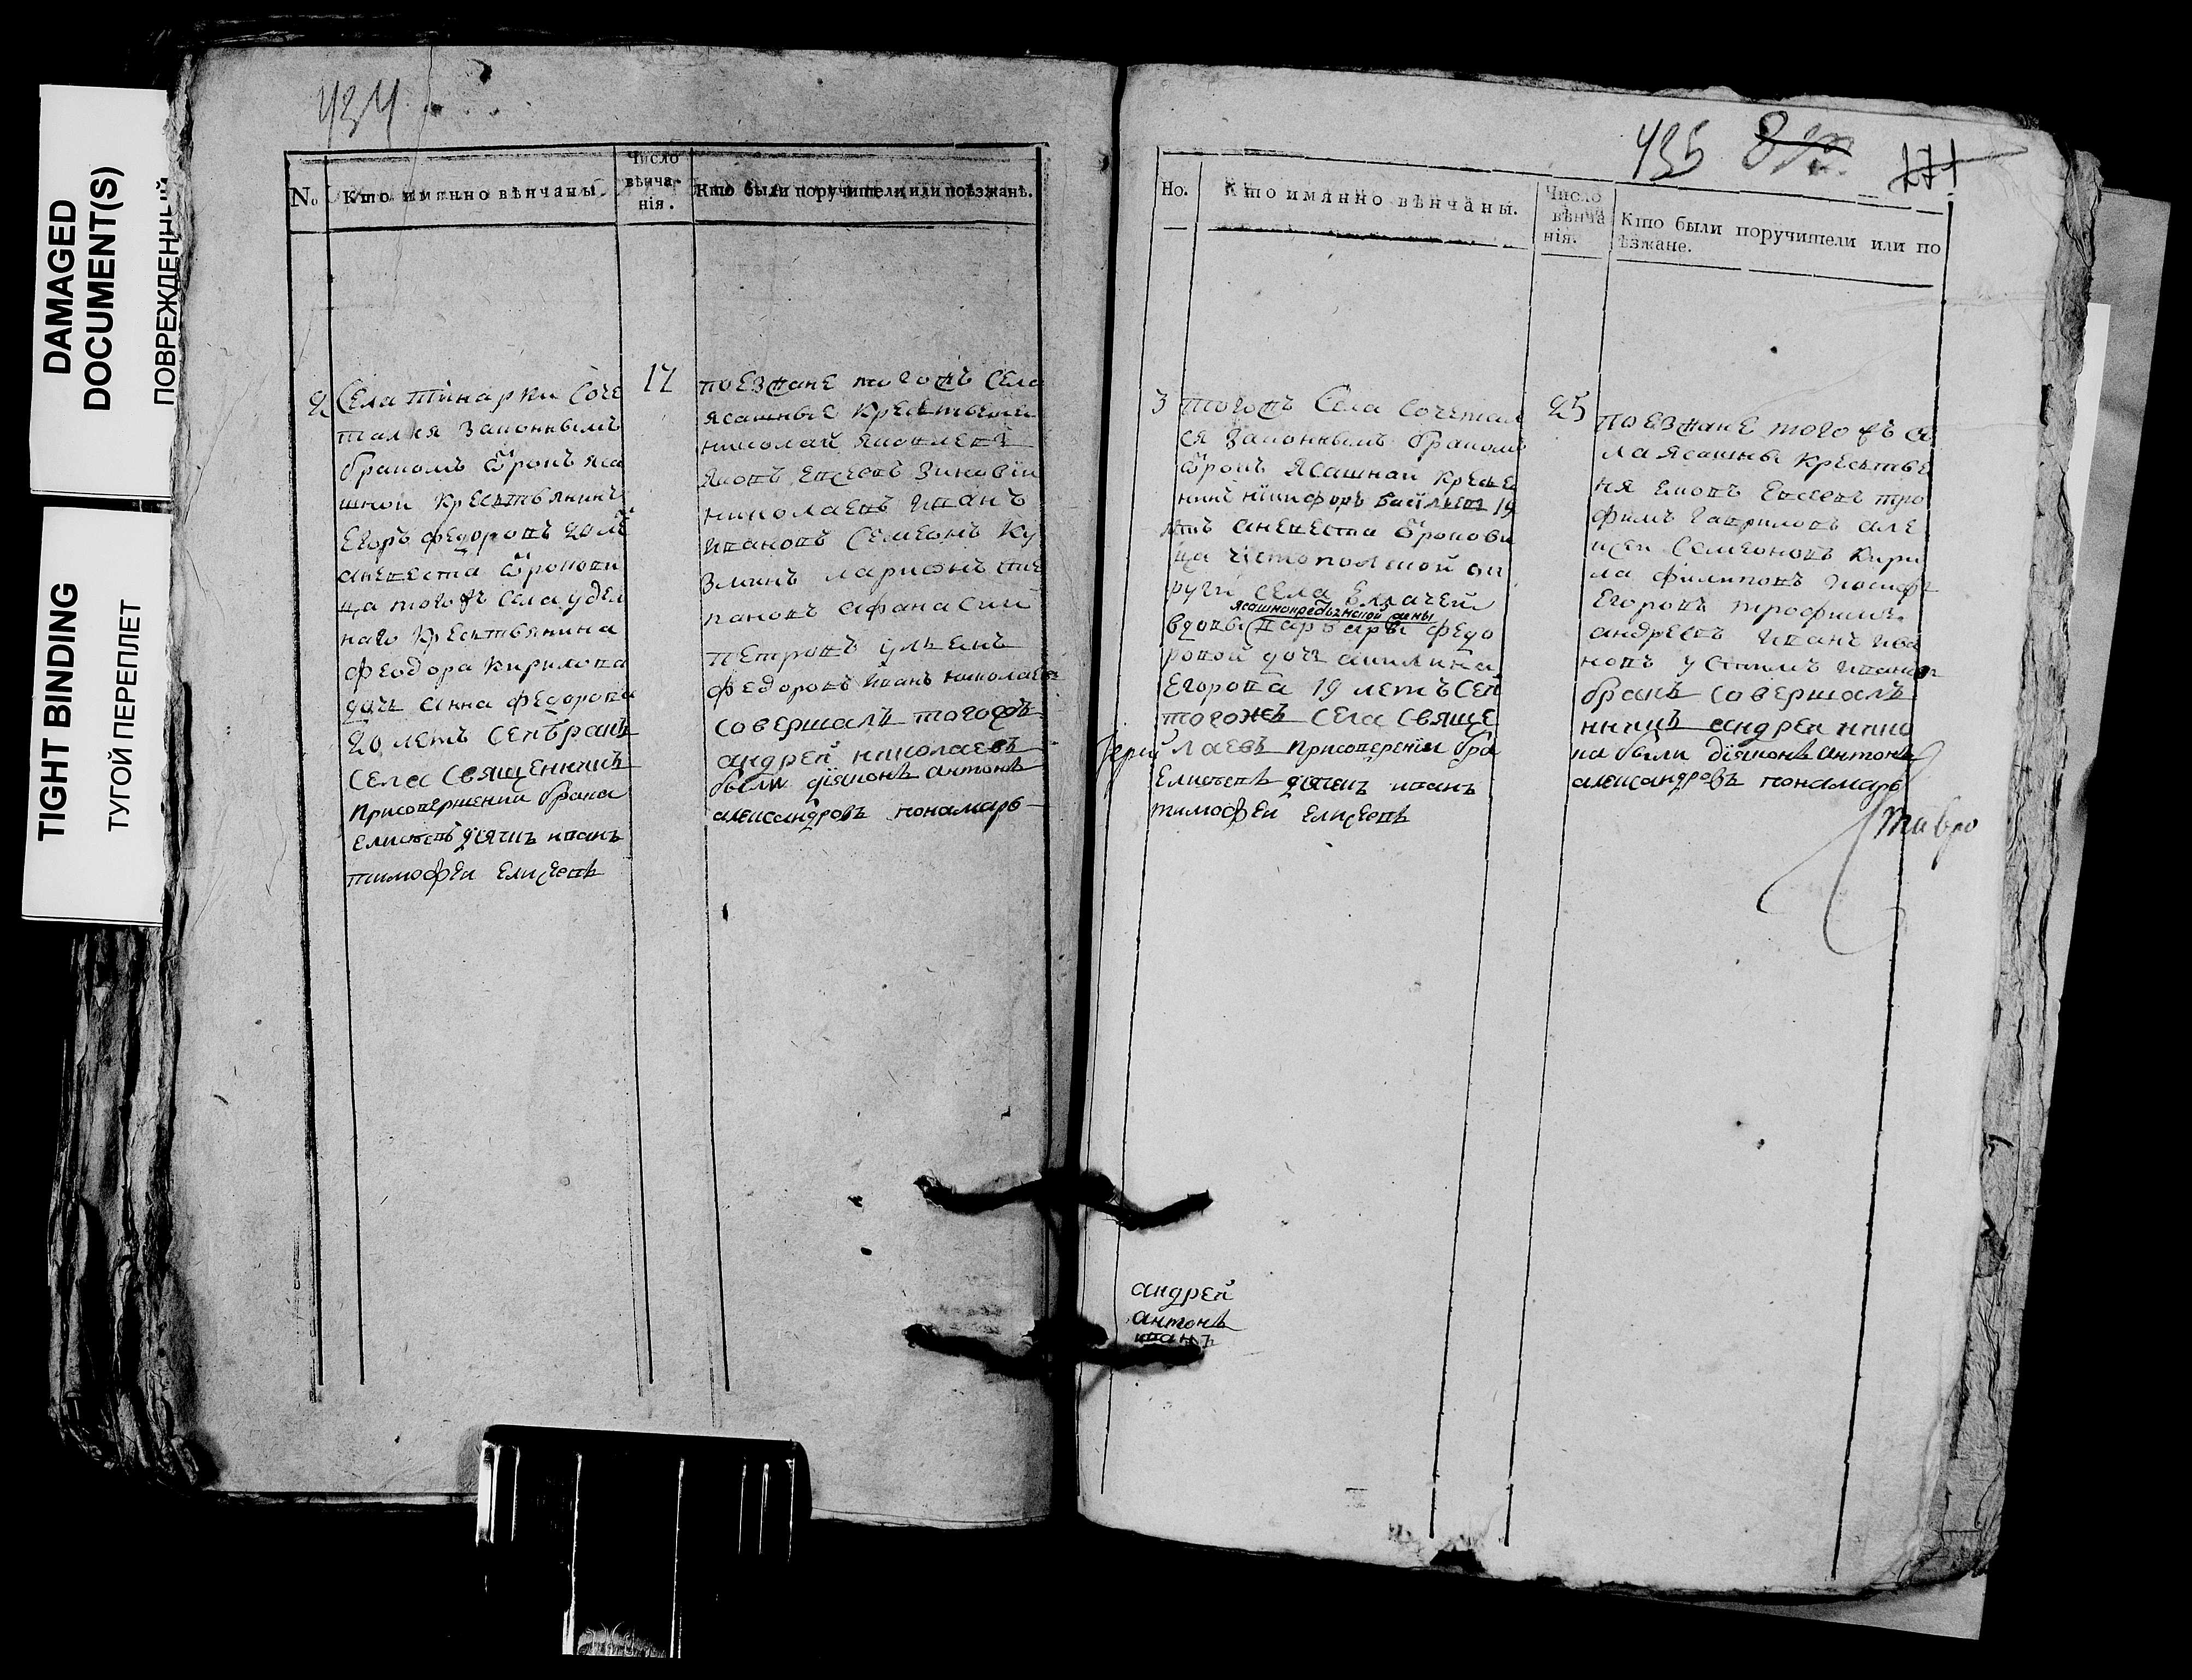 DAMAGED
DOCUMENT(S)
ПОВРЕЖДЕННЫЙ
TIGHT BINDING
ТУГОЙ ПЕРЕПЛЕТ
434
No
Кто имянно вѣнчаны.
Число
вѣнча-
нія.
Кто были поручители или поѣзжанѣ.
2
Села
соче
тался законнымъ
бракомъ ѿрокъ яса
шной крестьянинъ
Егоръ федоровъ 20 ле
аневеста ѿрокови
ца тогожъ села удел
наго крестьянина
феодора кирилова
дочь анна федорова
20 летъ сей бракъ
села священникъ
присовершении брака
елисеевъ дячекъ иванъ
тимофеи елисеевъ
17
поезжане тогожъ села
ясашные крестьяне
николай яковлевъ
яковъ евсеевъ зиновiи
николаевъ иванъ
ивановъ семеонъ ку
зминъ ларионъ сте
пановъ афанасии
петровъ улианъ
федоровъ иванъ николаевъ
совершалъ тогожъ
андрей николаевъ
были дiяконъ антонъ
александровъ пономарь
435
171
Но.
Кто имянно вѣнчаны.
Число
вѣнча
нія.
Кто были поручители или по
ѣзжане.
3
тогожъ села сочетал
ся законнымъ бракомъ
ѿрокъ ясашнаи кресть
нинъ никифоръ васильевъ 19
летъ аневеста ѿрокови
ца чистополской ок
руги села Елачей
вдовы варвары федо
ровой дочь акилина
Егорова 19 летъ сей
тогожъ села свяще
Іерей
лаевъ присовершенiи бра
Елисеевъ дячекъ иванъ
тимофеи елисеевъ
25
поезжане тогожъ се
ла ясашны крестья
ня яковъ евсеевъ тро
фимъ гавриловъ але
ксеи семеоновъ кири
ла филиповъ иосифъ
Егоровъ трофимъ
андреевъ иванъ ива
новъ устимъ иванов
бракъ совершалъ
нникъ андреи нико
ка были дiяконъ антонъ
александровъ пономарь
андрей
антонъ
иванъ